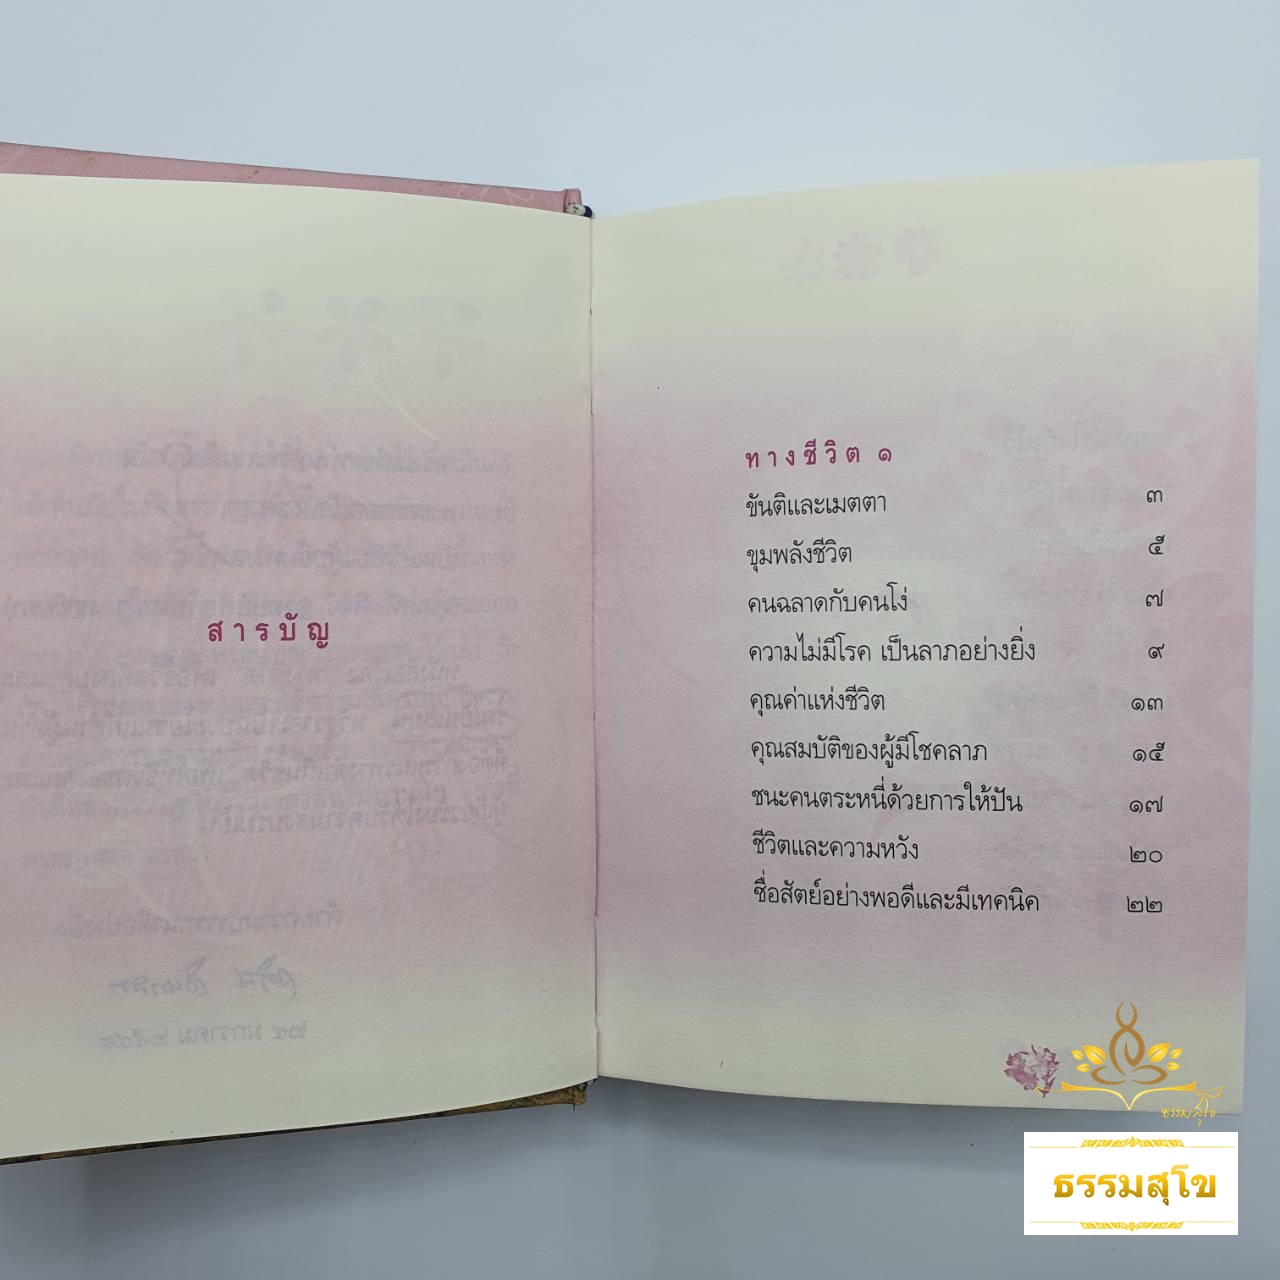 สารบัญ
ทางชีวิต ๑
ขันติและเมตตา ๓
ขุมพลังชีวิต ๕
คนฉลาดกับคนโง่ ๗
ความไม่มีโรค เป็นลาภอย่างยิ่ง ๙
คุณค่าแห่งชีวิต ๑๓
คุณสมบัติของผู้มีโชคลาภ ๑๕
ชนะคนตระหนี่ด้วยการให้ปัน ๑๗
ชีวิตและความหวัง ๒๐
ชื่อสัตย์อย่างพอดีและมีเทคนิค ๒๒
ธรรมสุโข
ธรรมสุโข